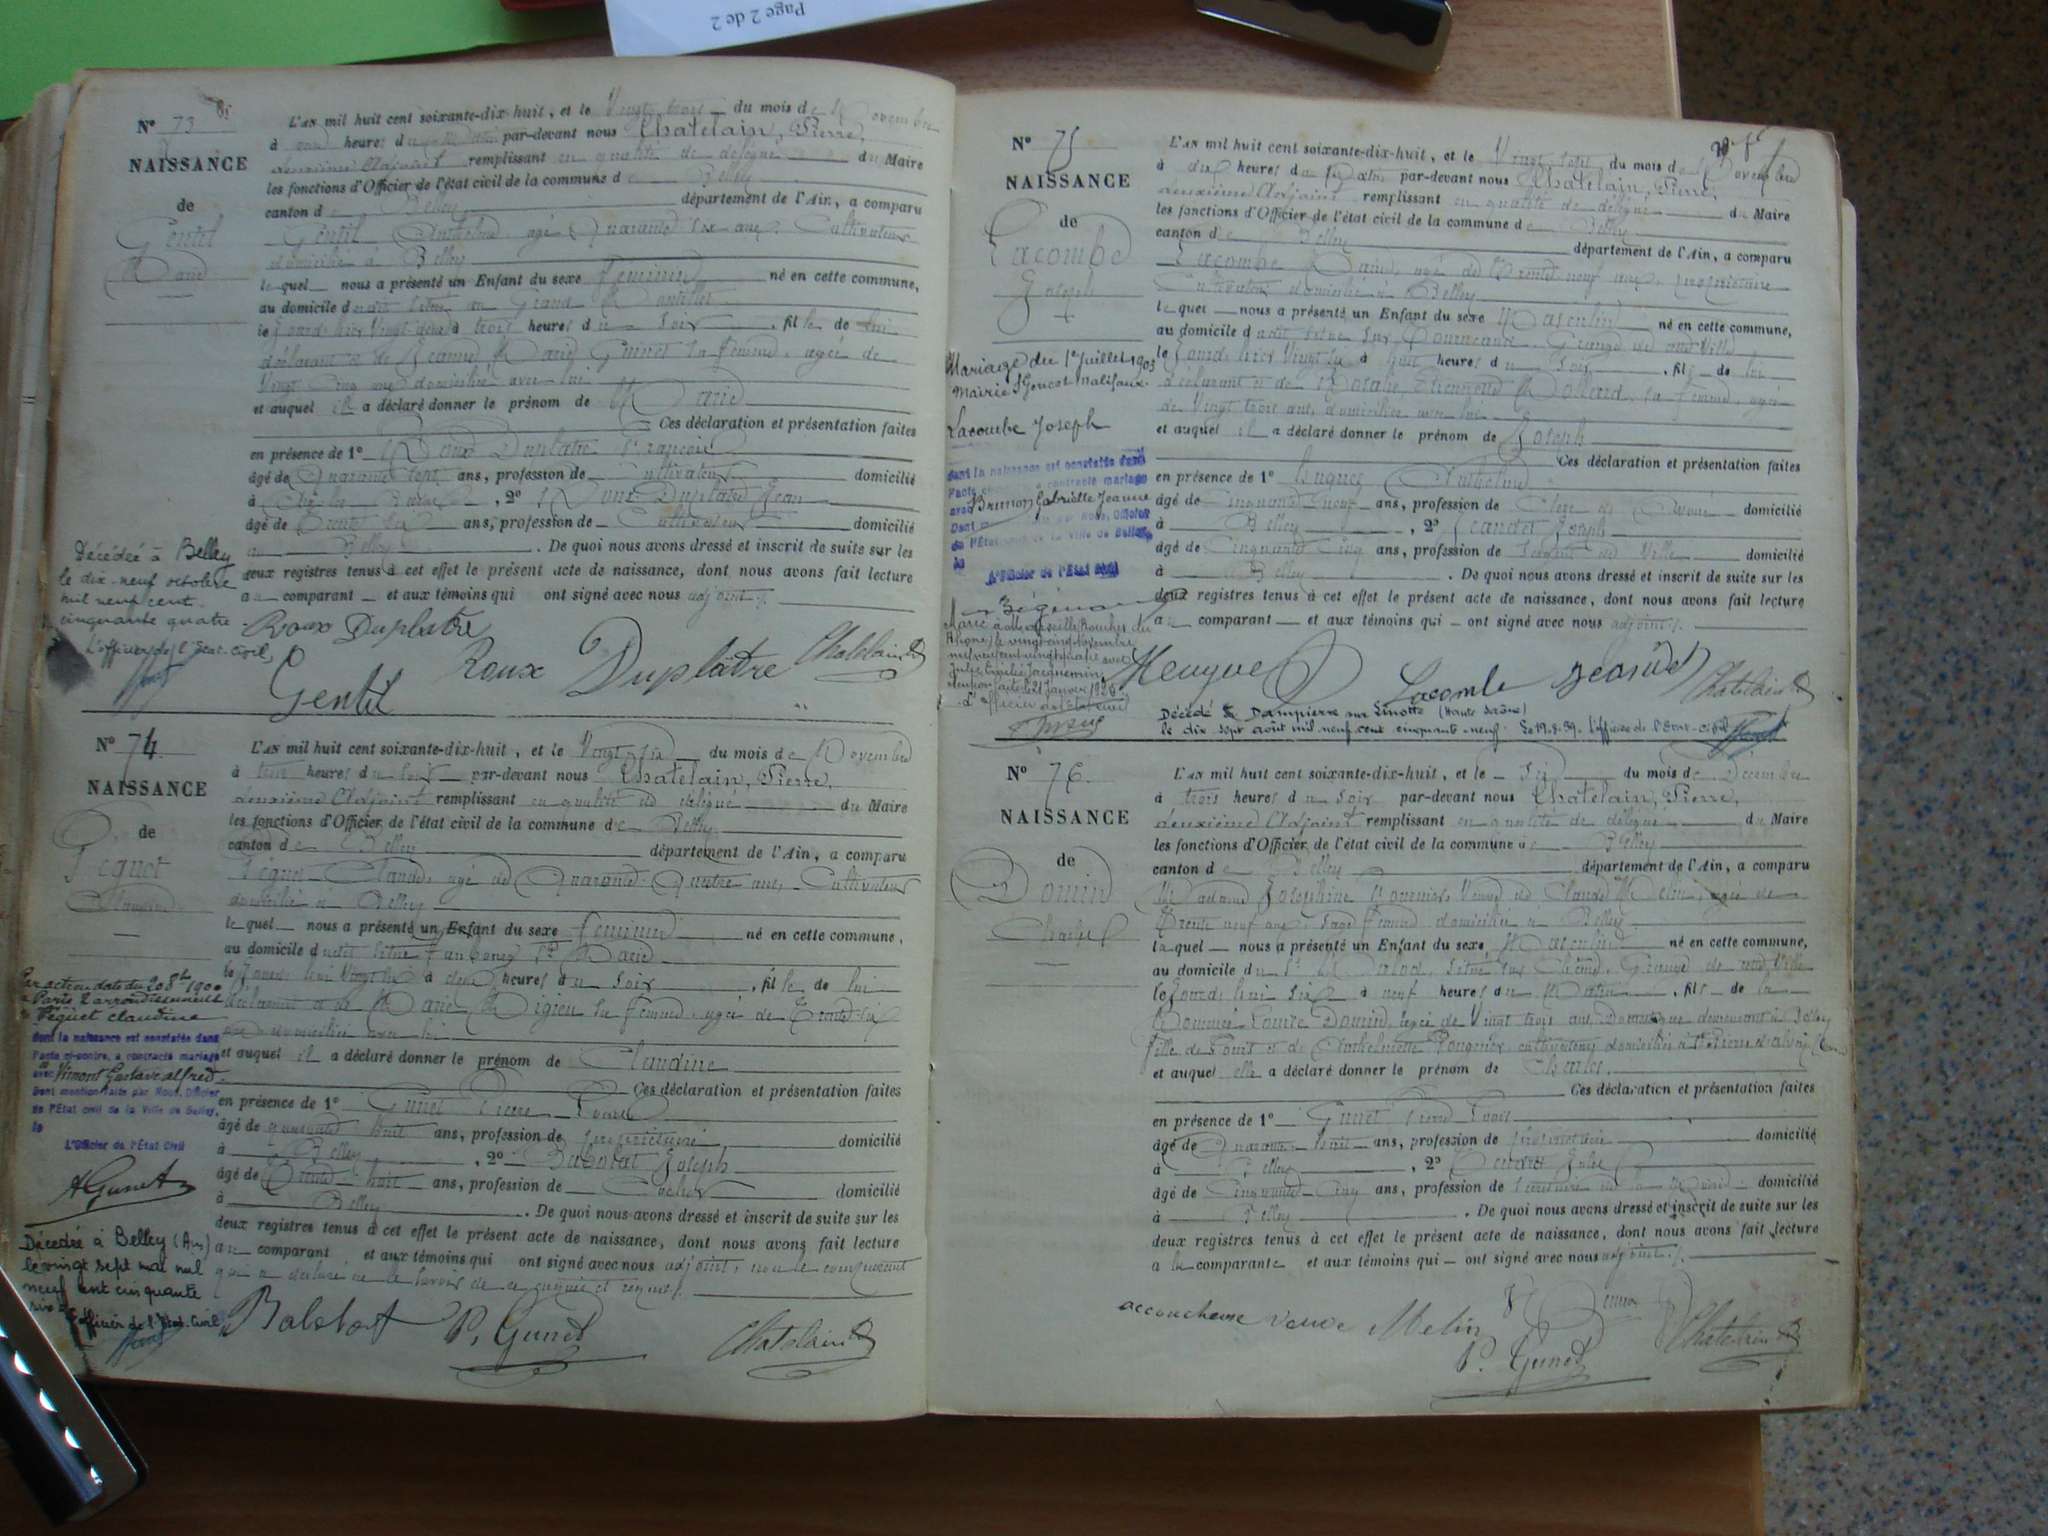 Page 2 de 2
Nº 73
NAISSANCE
de
Gentil
Marie
L'AN mil huit cent soixante-dix-huit, et le Vingt trois du mois de Novembre
à heures du par-devant nous Chatelain, Pierre,
deuxième Adjoint remplissant en qualité de délégué du Maire
les fonctions d'Officier de l'état civil de la commune de Belley
canton de Belley département de l'Ain, a comparu
Gentil Anthelme, âgé Quarante six ans, Cultivateur
domicilié à Belley
lequel nous a présenté un Enfant du sexe féminin né en cette commune,
au domicile
le avant hier Vingt à trois heures du soir, fille de lui
déclarant et de Jeanne Marie Gunet sa femme, agée de
Vingt cinq ans domiciliée avec lui
et auquel il a déclaré donner le prénom de Marie
Ces déclaration et présentation faites
en présence de 1º Roux Duplatre François
âgé de Quarante sept ans, profession de cultivateur domicilié
à , 2º Roux Duplatre Jean
âgé de Trente six ans, profession de Cultivateur domicilié
à Belley. De quoi nous avons dressé et inscrit de suite sur les
deux registres tenus à cet effet le présent acte de naissance, dont nous avons fait lecture
au comparant et aux témoins qui ont signé avec nous adjoint.
Décédée à Belley
le dix-neuf octobre
mil neuf cent
cinquante quatre
L'officier de l'Etat-civil,
Roux Duplatre
Gentil Roux Duplâtre Chatelain
Nº 74
NAISSANCE
de
Péguet
Claudine
L'AN mil huit cent soixante-dix-huit, et le Vingt six du mois de Novembre
à trois heures du soir par-devant nous Chatelain, Pierre,
deuxième Adjoint remplissant en qualité de délégué du Maire
les fonctions d'Officier de l'état civil de la commune de Belley
canton de Belley département de l'Ain, a comparu
Péguet Claude, âgé de Quarante Quatre ans, Cultivateur
domicilié à Belley
lequel nous a présenté un Enfant du sexe féminin né en cette commune,
au domicile
à deux heures du soir, fille de lui
déclarant et de Marie Migieu sa femme, agée de Trente six
ans domiciliée avec lui
et auquel il a déclaré donner le prénom de Claudine
Ces déclaration et présentation faites
en présence de 1º Gunet Pierre Louis
âgé de quarante huit ans, profession de propriétaire domicilié
à Belley, 2º Babolat Joseph
âgé de Trente huit ans, profession de domicilié
à Belley. De quoi nous avons dressé et inscrit de suite sur les
deux registres tenus à cet effet le présent acte de naissance, dont nous avons fait lecture
au comparant et aux témoins qui ont signé avec nous adjoint, non le comparant
qui a déclaré ne le savoir de ce enquis et requis.
Par acte en date du 20 8bre 1900
à Paris arrondissement
Péguet Claudine
dont la naissance est constatée dans
l'acte ci-contre, a contracté mariage
avec Vimont Gustave Alfred
Dont mention faite par Nous, Officier
de l'État civil de la Ville de Belley,
le
L'Officier de l'État Civil
A Gunet
Décédée à Belley (Ain)
le vingt sept mai mil
neuf cent cinquante
six
L'officier de l'Etat-Civil
Babolat P. Gunet Chatelain
Nº 75
NAISSANCE
de
Lacombe
Joseph
L'AN mil huit cent soixante-dix-huit, et le Vingt sept du mois de Novembre
à dix heures du Matin par-devant nous Chatelain, Pierre,
deuxième Adjoint remplissant en qualité de délégué du Maire
les fonctions d'Officier de l'état civil de la commune de Belley
canton de Belley département de l'Ain, a comparu
Lacombe âgé de Trente neuf ans, propriétaire
Cultivateur domicilié à Belley
lequel nous a présenté un Enfant du sexe Masculin né en cette commune,
au domicile
le avant hier Vingt à huit heures du soir, fils de lui
déclarant et de Rosalie Etiennette Mollard sa femme, agée
de Vingt trois ans, domiciliée avec lui
et auquel il a déclaré donner le prénom de Joseph
Ces déclaration et présentation faites
en présence de 1º Hugues Anthelme
âgé de Cinquante neuf ans, profession de Clerc d'Avoué domicilié
à Belley, 2º Joseph
âgé de Cinquante Cinq ans, profession de Sergent de Ville domicilié
à Belley. De quoi nous avons dressé et inscrit de suite sur les
deux registres tenus à cet effet le présent acte de naissance, dont nous avons fait lecture
au comparant et aux témoins qui ont signé avec nous adjoint.
Mariage du 1er Juillet 1903
Mairie St Genest Malifaux.
Lacombe Joseph
dont la naissance est constatée dans
l'acte ci-contre, a contracté mariage
avec Brunon Gabrielle Jeanne
Dont mention faite par Nous, Officier
de l'État civil de la Ville de Belley,
le
L'Officier de l'État Civil
Marié à Marseille Bouches du
Rhône, le vingt cinq novembre
mil neuf cent vingt avec
Julie Emilie Jacquemin
Mention faite le 21 Janvier 1926
L'officier de l'Etat civil
Lacombe Chatelain
Décédé à Dampierre sur Linotte (Haute Saône)
le dix sept août mil neuf cent cinquante-neuf. Le 19.8.59. L'officier de l'Etat-civil
Nº 76
NAISSANCE
de
Domin
Charles
L'AN mil huit cent soixante-dix-huit, et le Six du mois de Décembre
à trois heures du soir par-devant nous Chatelain, Pierre,
deuxième Adjoint remplissant en qualité de délégué du Maire
les fonctions d'Officier de l'état civil de la commune de Belley
canton de Belley département de l'Ain, a comparu
Madame Joséphine Veuve de Claude Melin, agée de
Trente neuf ans, sage femme domiciliée à Belley
laquelle nous a présenté un Enfant du sexe Masculin né en cette commune,
au domicile
le Jourd'hui six à neuf heures du Matin, fils de la
nommée Louise Domin, agée de Vingt trois ans, Domestique demeurant à Belley
fille de Louis et de Anthelmette cultivateurs domiciliés à
et auquel elle a déclaré donner le prénom de Charles
Ces déclaration et présentation faites
en présence de 1º Gunet Pierre Louis
âgé de Quarante huit ans, profession de propriétaire domicilié
à Belley, 2º Jules
âgé de Cinquante Cinq ans, profession de Secrétaire de la Mairie domicilié
à Belley. De quoi nous avons dressé et inscrit de suite sur les
deux registres tenus à cet effet le présent acte de naissance, dont nous avons fait lecture
à la comparante et aux témoins qui ont signé avec nous adjoint.
accoucheuse veuve Melin
P. Gunet Chatelain